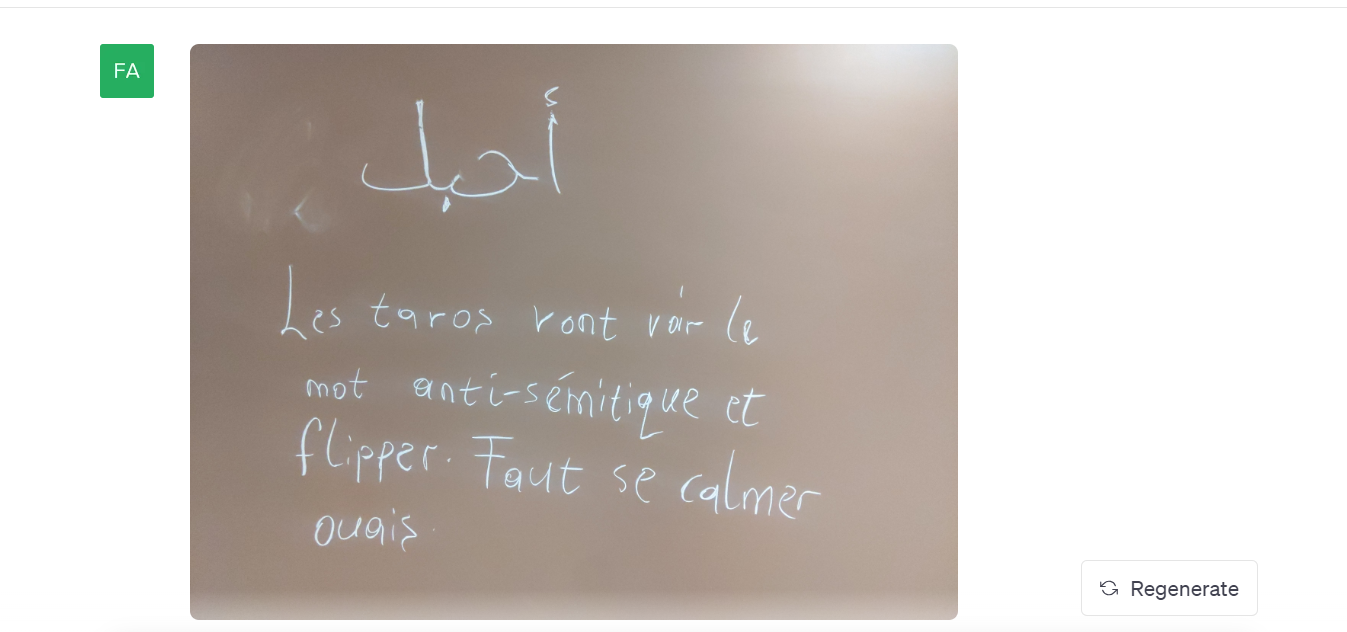 FA
أحبك
Les taros vont voir le
mot anti-sémitique et
flipper. Faut se calmer
ouais.
Regenerate